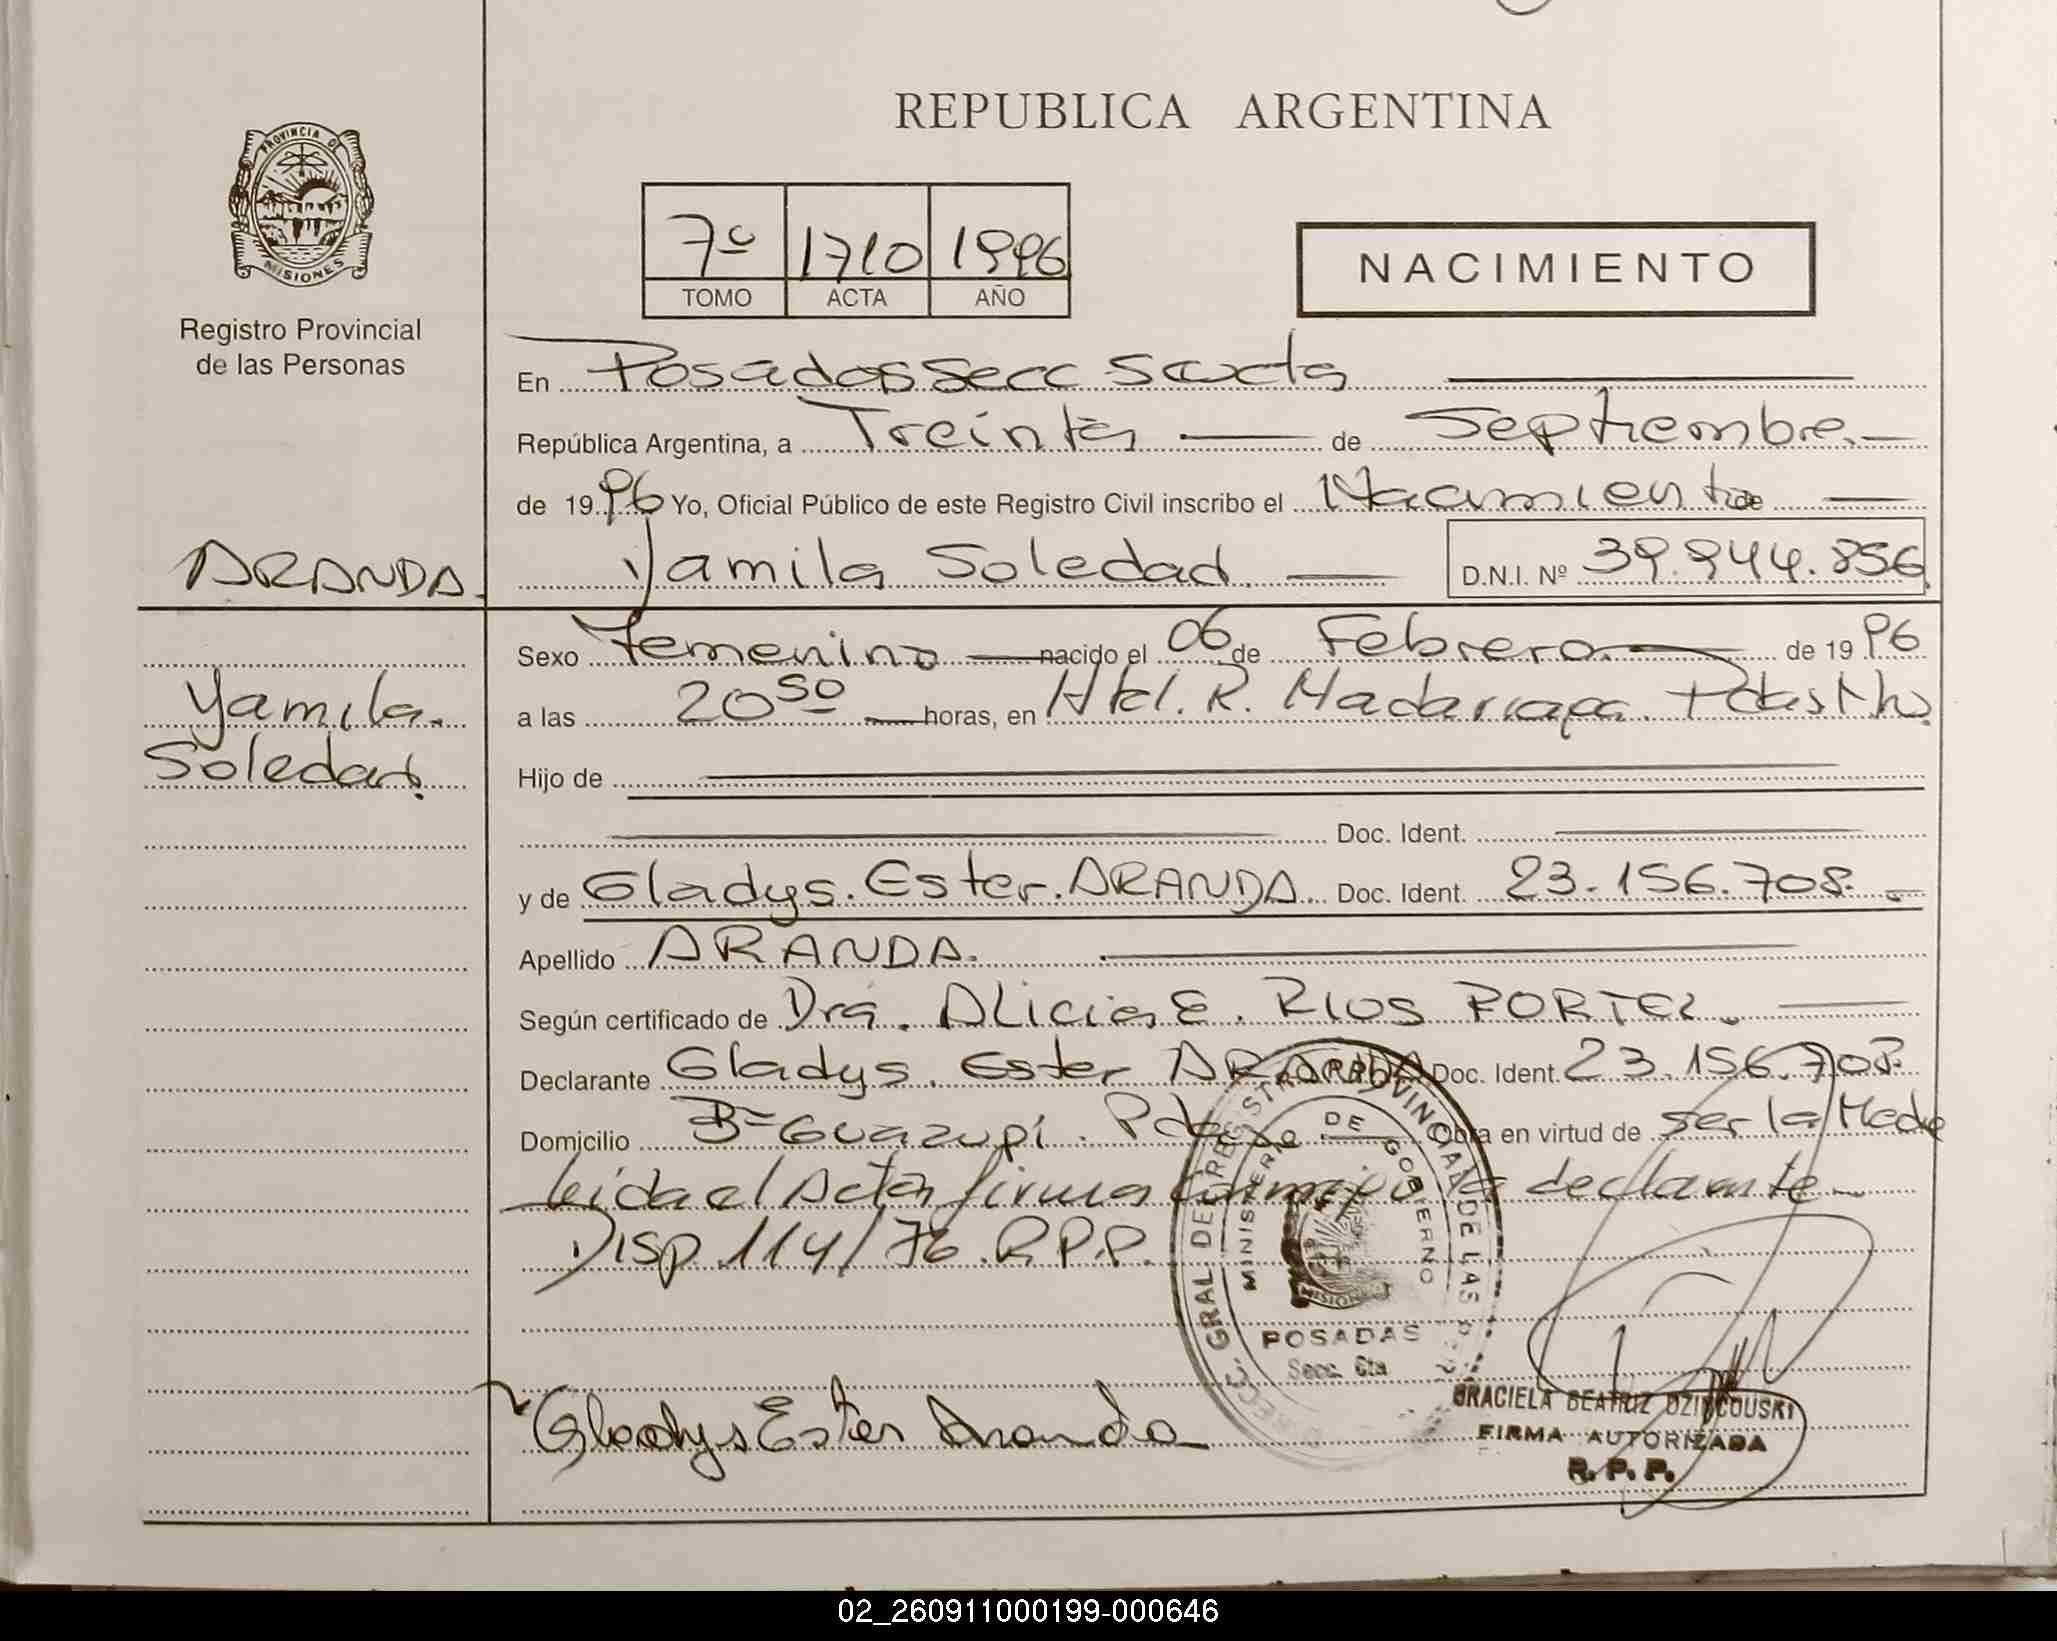 REPUBLICA ARGENTINA
PROVINCIA DE
MISIONES
Registro Provincial
de las Personas
7º 1710 1996
TOMO ACTA AÑO
NACIMIENTO
En Posadas Secc Sexta
República Argentina, a Treinta de Septiembre.
de 1996 Yo, Oficial Público de este Registro Civil inscribo el Nacimiento de
ARANDA. Yamila Soledad. D.N.I. Nº 39.944.856
Sexo Femenino nacido el 06 de Febrero de 1996
Yamila.
Soledad.
a las 20 50 horas, en Htal. R. Madariaga. Pdas Mnes.
Hijo de
Doc. Ident.
y de Gladys. Ester. ARANDA. Doc. Ident. 23.156.708.
Apellido ARANDA.
Según certificado de Dra. Alicia E. RIOS PORTEL.
Declarante Gladys. Ester ARANDA Doc. Ident. 23.156.708.
Domicilio Bº Guazupi. Pdas Obra en virtud de ser la Madre
Leida el Acta firma conmigo la declarante
Disp. 114/76. R.P.P.
DIRECC. GRAL DE REGISTRO PROVINCIAL DE LAS
MINISTERIO DE GOBIERNO
MISIONES
POSADAS
Secc. 6ta
Gladys Ester Aranda
GRACIELA BEATRIZ DZINCOUSKI
FIRMA AUTORIZADA
R. P. P.
02_260911000199-000646